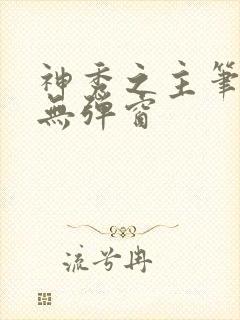 神秀之主筆
無彈窗
流兮冉